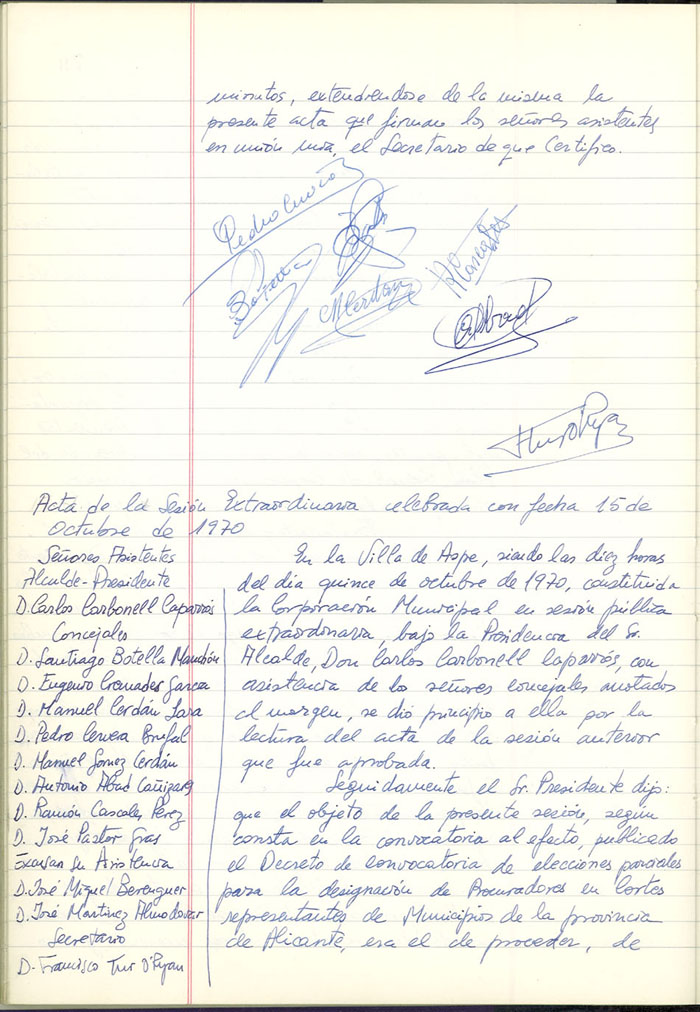 minutos, extendiéndose de la misma la
presente acta que firman los señores asistentes
en unión mía, el Secretario de que Certifico.
Acta de la Sesión Extraordinaria celebrada con fecha 15 de
octubre de 1970
Señores Asistentes
Alcalde-Presidente
D. Carlos Carbonell Caparrós
Concejales
D. Santiago Botella Manchón
D. Eugenio Cremades Garcia
D. Manuel Cerdán Jara
D. Pedro Cervera Brufal
D. Manuel Gomez Cerdán
D. Antonio Abad Cañizares
D. Ramón Cascales Pérez
D. José Pastor Gras
Excusan su Asistencia
D. José Miguel Berenguer
D. José Martinez Almodovar
Secretario
D. Francisco Tur O'Ryan
En la Villa de Aspe, siendo las diez horas
del día quince de octubre de 1970, constituida
la Corporación Municipal en sesión pública
extraordinaria, bajo la Presidencia del Sr.
Alcalde, Don Carlos Carbonell Caparrós, con
asistencia de los señores concejales anotados
al margen, se dio principio a ella por la
lectura del acta de la sesión anterior
que fue aprobada.
Seguidamente el Sr. Presidente dijo:
que el objeto de la presente sesión, según
consta en la convocatoria al efecto, publicado
el Decreto de convocatoria de elecciones parciales
para la designación de Procuradores en Cortes
representantes de Municipios de la provincia
de Alicante, era el de proceder, de